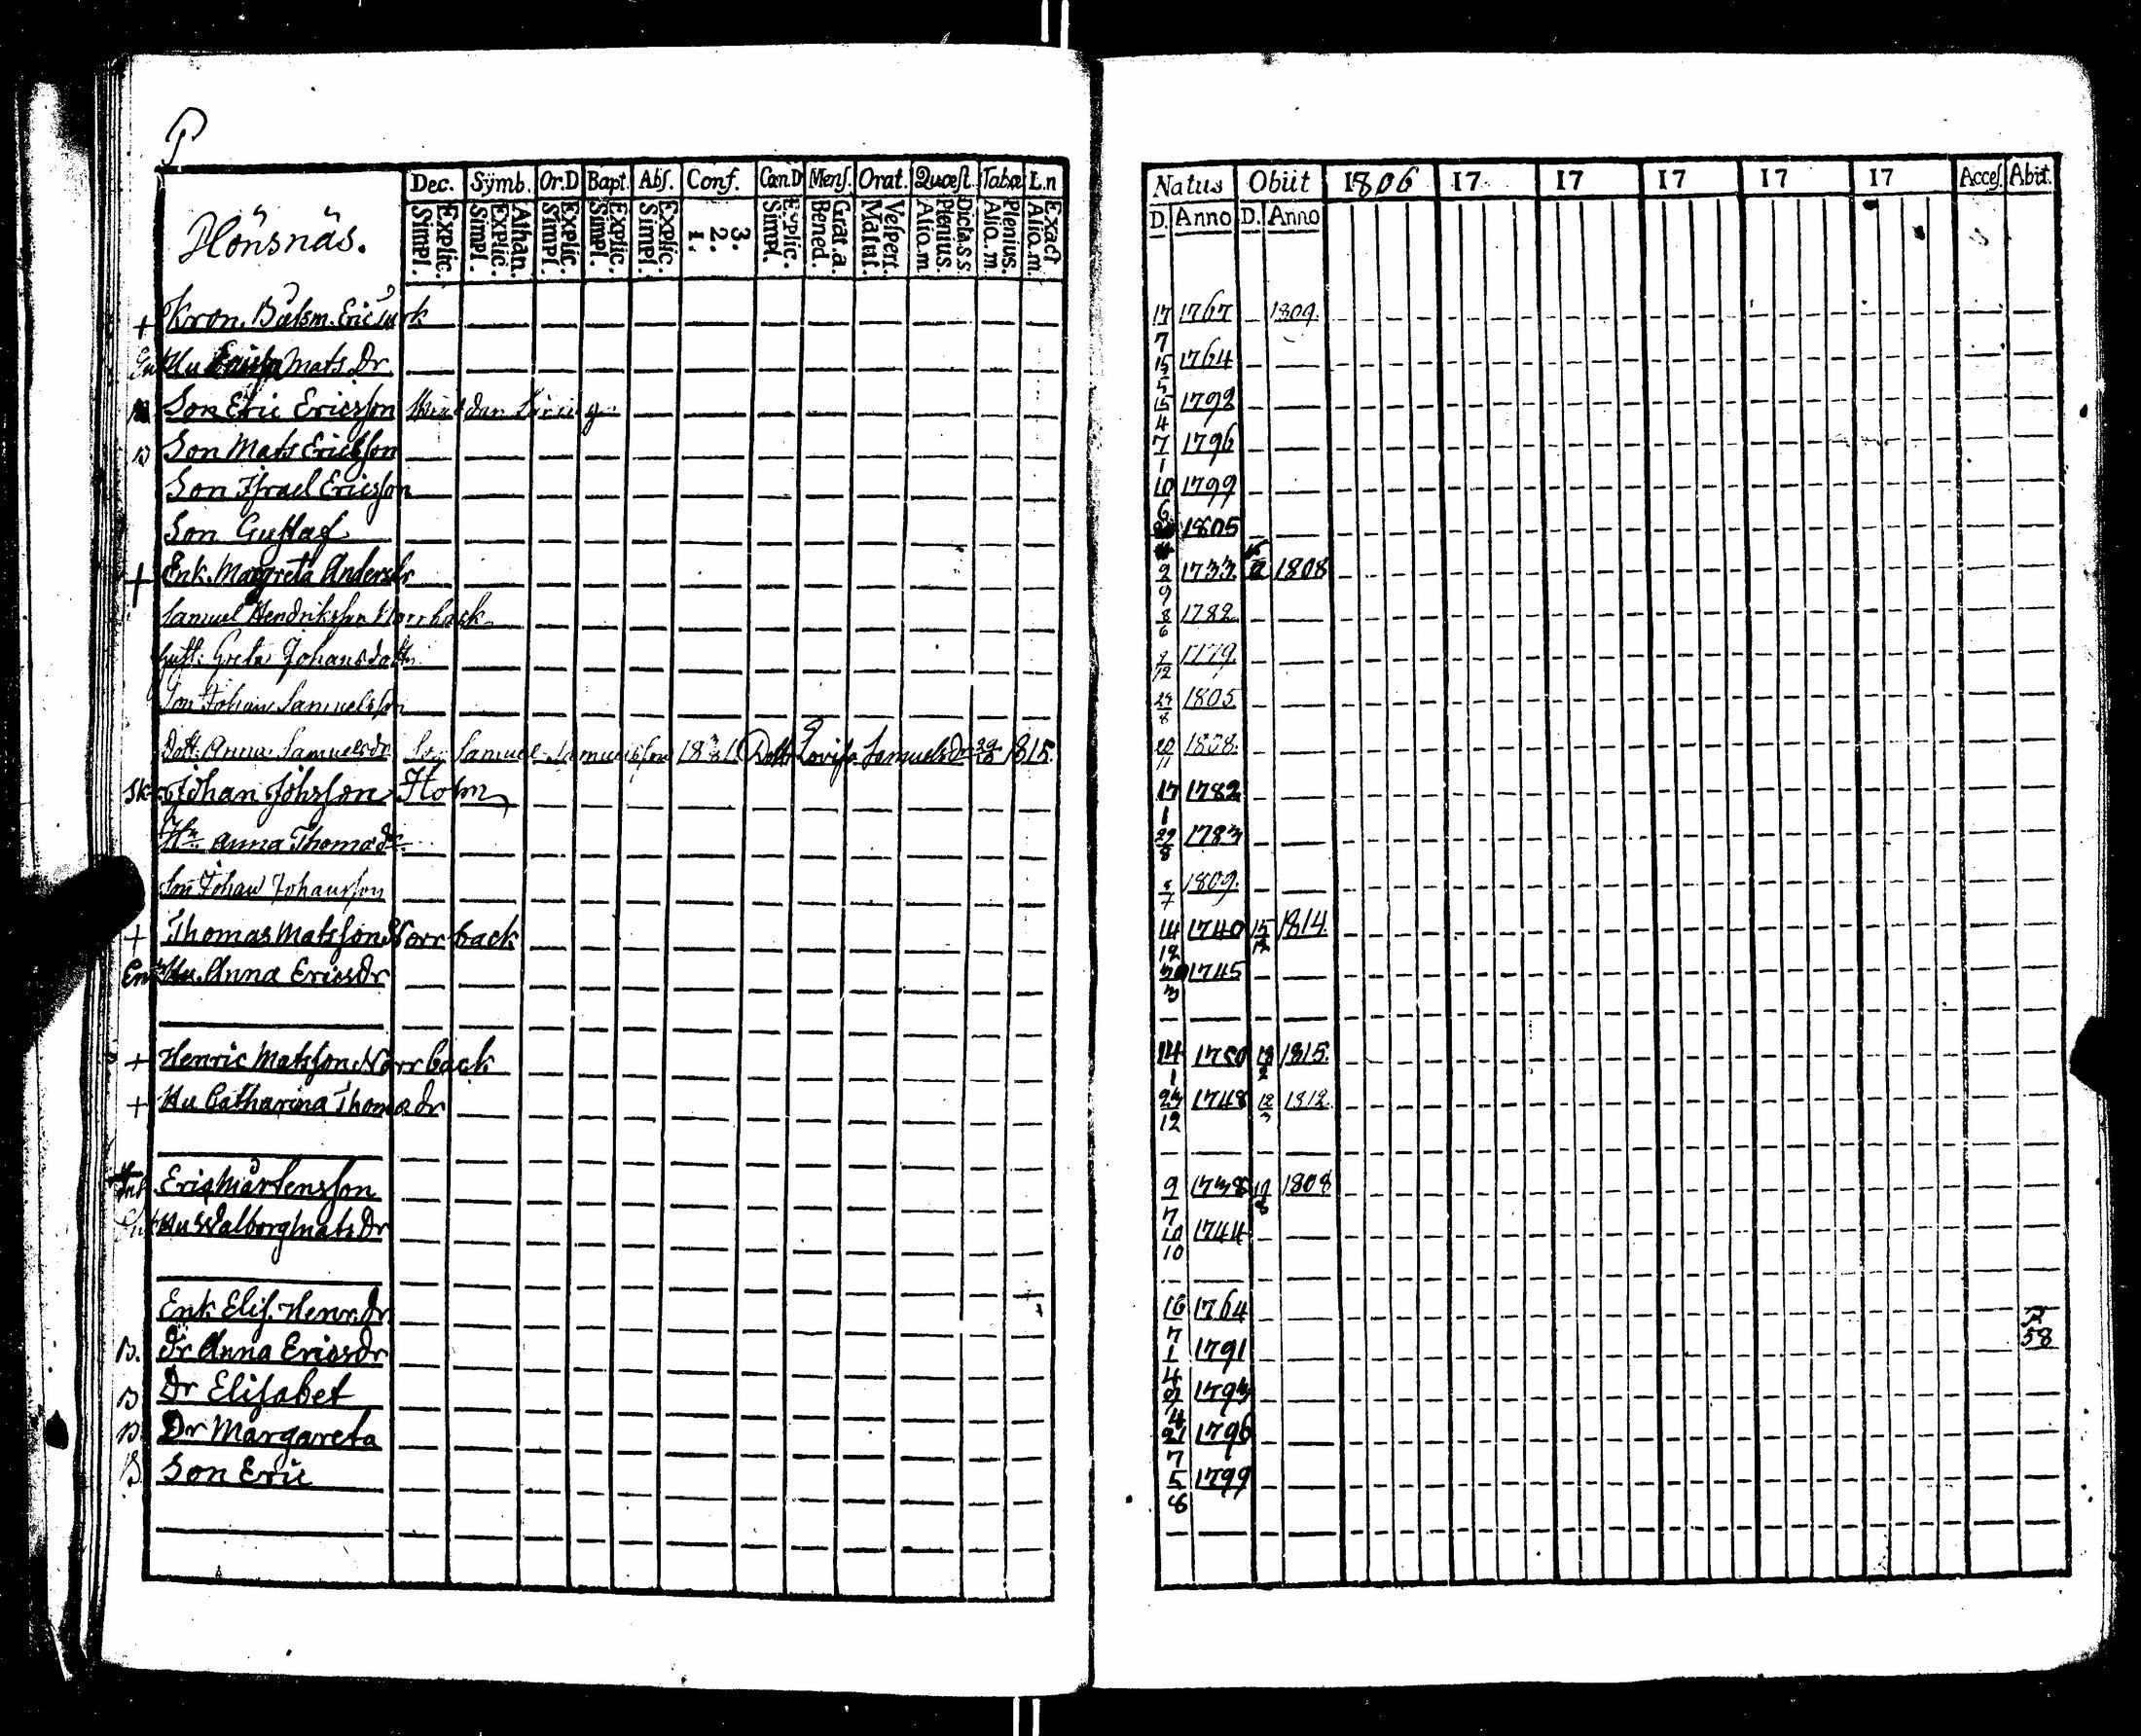 P
Hönsnäs.
Dec. Symb. Or.D Bapt. Abs. Conf. Can.D Mens. Orat. Quæst. Tabæ L.n
Explic. Simpl. Athan. Explic. Simpl. Explic. Simpl. Explic. Simpl. Explic. Simpl. 3. 2. 1. Explic. Simpl. Grat.a. Bened. Vespert. Matut. Dicta.s.s. Plenius. Alio.m Plenius. Alio.m. Exact Alio.m.
Natus Obiit 1806 17 17 17 17 17 Acces. Abiit.
D. Anno D. Anno
+ Kron. Båtsm. Eric 17/7 1767 1809.
Enk Hu Mats Dr 15/5 1764
Son Eric Ericsson 15/4 1792
Son Mats Ericsson 7/1 1796
Son Israel Ericsson 10/6 1799
Son Gustaf 1805
+ Enk. Margreta Andersdr 2/9 1733 1808
Samuel Hendriksson Norrback 8/6 1782
Hust: Greta Johansdott. 1779
Son Johan Samuelsson 1805
Dott: Anna Samuelsdr Son Samuel Samuelsson Dott Lovisa Samuelsdr 1815. 20/11 1808
Johan Johsson Holm 17/1 1782
Hu Anna Thomadr 29/8 1783
Son Johan Johansson 1809.
+ Thomas Matsson Norrback 14/12 1740 15/12 1814
Enk Hu. Anna Ericsdr 1745
+ Henric Matsson Norrback 14/1 1750 1815.
+ Hu Catharina Thomadr 24/12 1748 12/3 1812.
Eric Mårtensson 9/7 1738 19/8 1808
Enk Hu Walborg Mats Dr 10/10 1744
Enk Elis. Henr. dr 16/7 1764
Dr Anna Ericsdr 1/4 1791 58
Dr Elisabet 1793
Dr Margareta 21/7 1796
Son Eric 1799